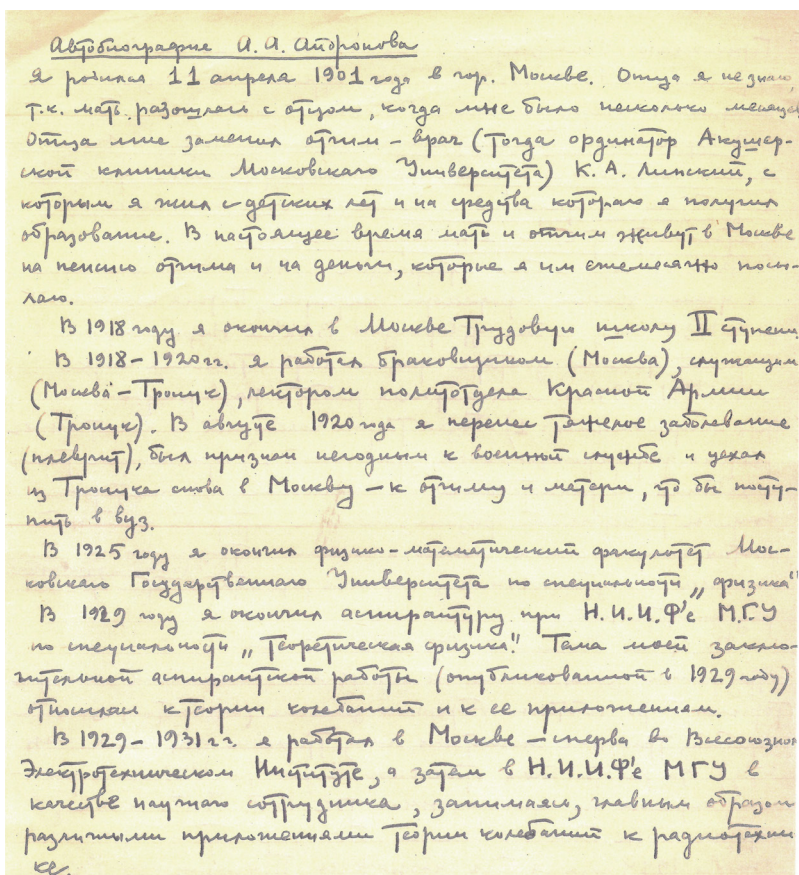 Автобиография А. А. Андронова
Я родился 11 апреля 1901 года в гор. Москве. Отца я не знаю,
т.к. мать разошлась с отцом, когда мне было несколько месяцев.
Отца мне заменил отчим – врач (тогда ординатор Акушер-
ской клиники Московского Университета) К. А. Липский, с
которым я жил с детских лет и на средства которого я получил
образование. В настоящее время мать и отчим живут в Москве
на пенсию отчима и на деньги, которые я им ежемесячно посы-
лаю.
В 1918 году я окончил в Москве Трудовую школу II ступени.
В 1918–1920 гг. я работал браковщиком (Москва), служащим
(Москва – Троицк), лектором политотдела Красной Армии
(Троицк). В августе 1920 года я перенес тяжелое заболевание
(плеврит), был признан негодным к военной службе и уехал
из Троицка снова в Москву – к отчиму и матери, что бы посту-
пить в вуз.
В 1925 году я окончил физико-математический факультет Мос-
ковского Государственного Университета по специальности „физика"
В 1929 году я окончил аспирантуру при Н.И.И.Ф'е МГУ
по специальности „Теоретическая физика". Тема моей заклю-
чительной аспирантской работы (опубликованной в 1929 году)
относилась к теории колебаний и к ее приложениям.
В 1929–1931 гг. я работал в Москве – сперва во Всесоюзном
Электротехническом Институте, а затем в Н.И.И.Ф'е МГУ в
качестве научного сотрудника, занимаясь, главным образом
различными приложениями теории колебаний к радиотехни
ке.